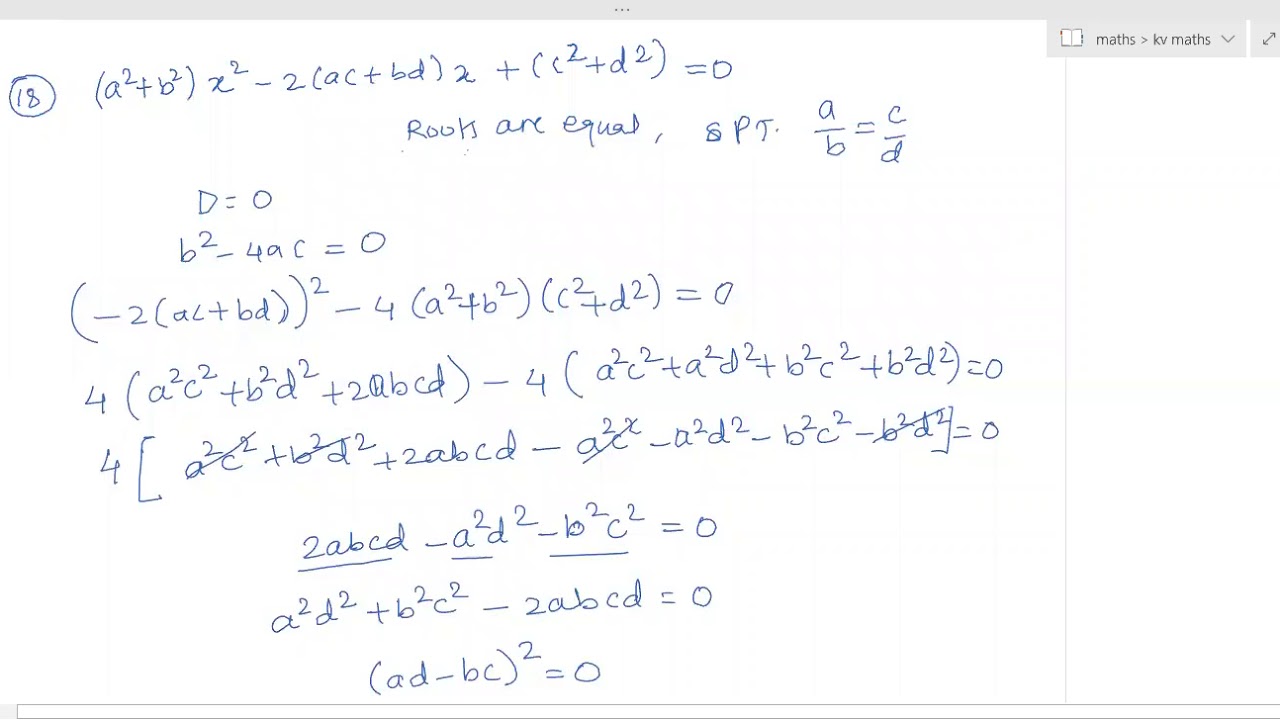 ...
maths > kv maths
(18) (a²+b²) x² - 2(ac+bd) x + (c²+d²) = 0
Roots are equal, SPT. a/b = c/d
D = 0
b² - 4ac = 0
(-2(ac+bd))² - 4 (a²+b²) (c²+d²) = 0
4 (a²c² + b²d² + 2abcd) - 4 (a²c² + a²d² + b²c² + b²d²) = 0
4 [ a²c² + b²d² + 2abcd - a²c² - a²d² - b²c² - b²d² ] = 0
2abcd - a²d² - b²c² = 0
a²d² + b²c² - 2abcd = 0
(ad - bc)² = 0